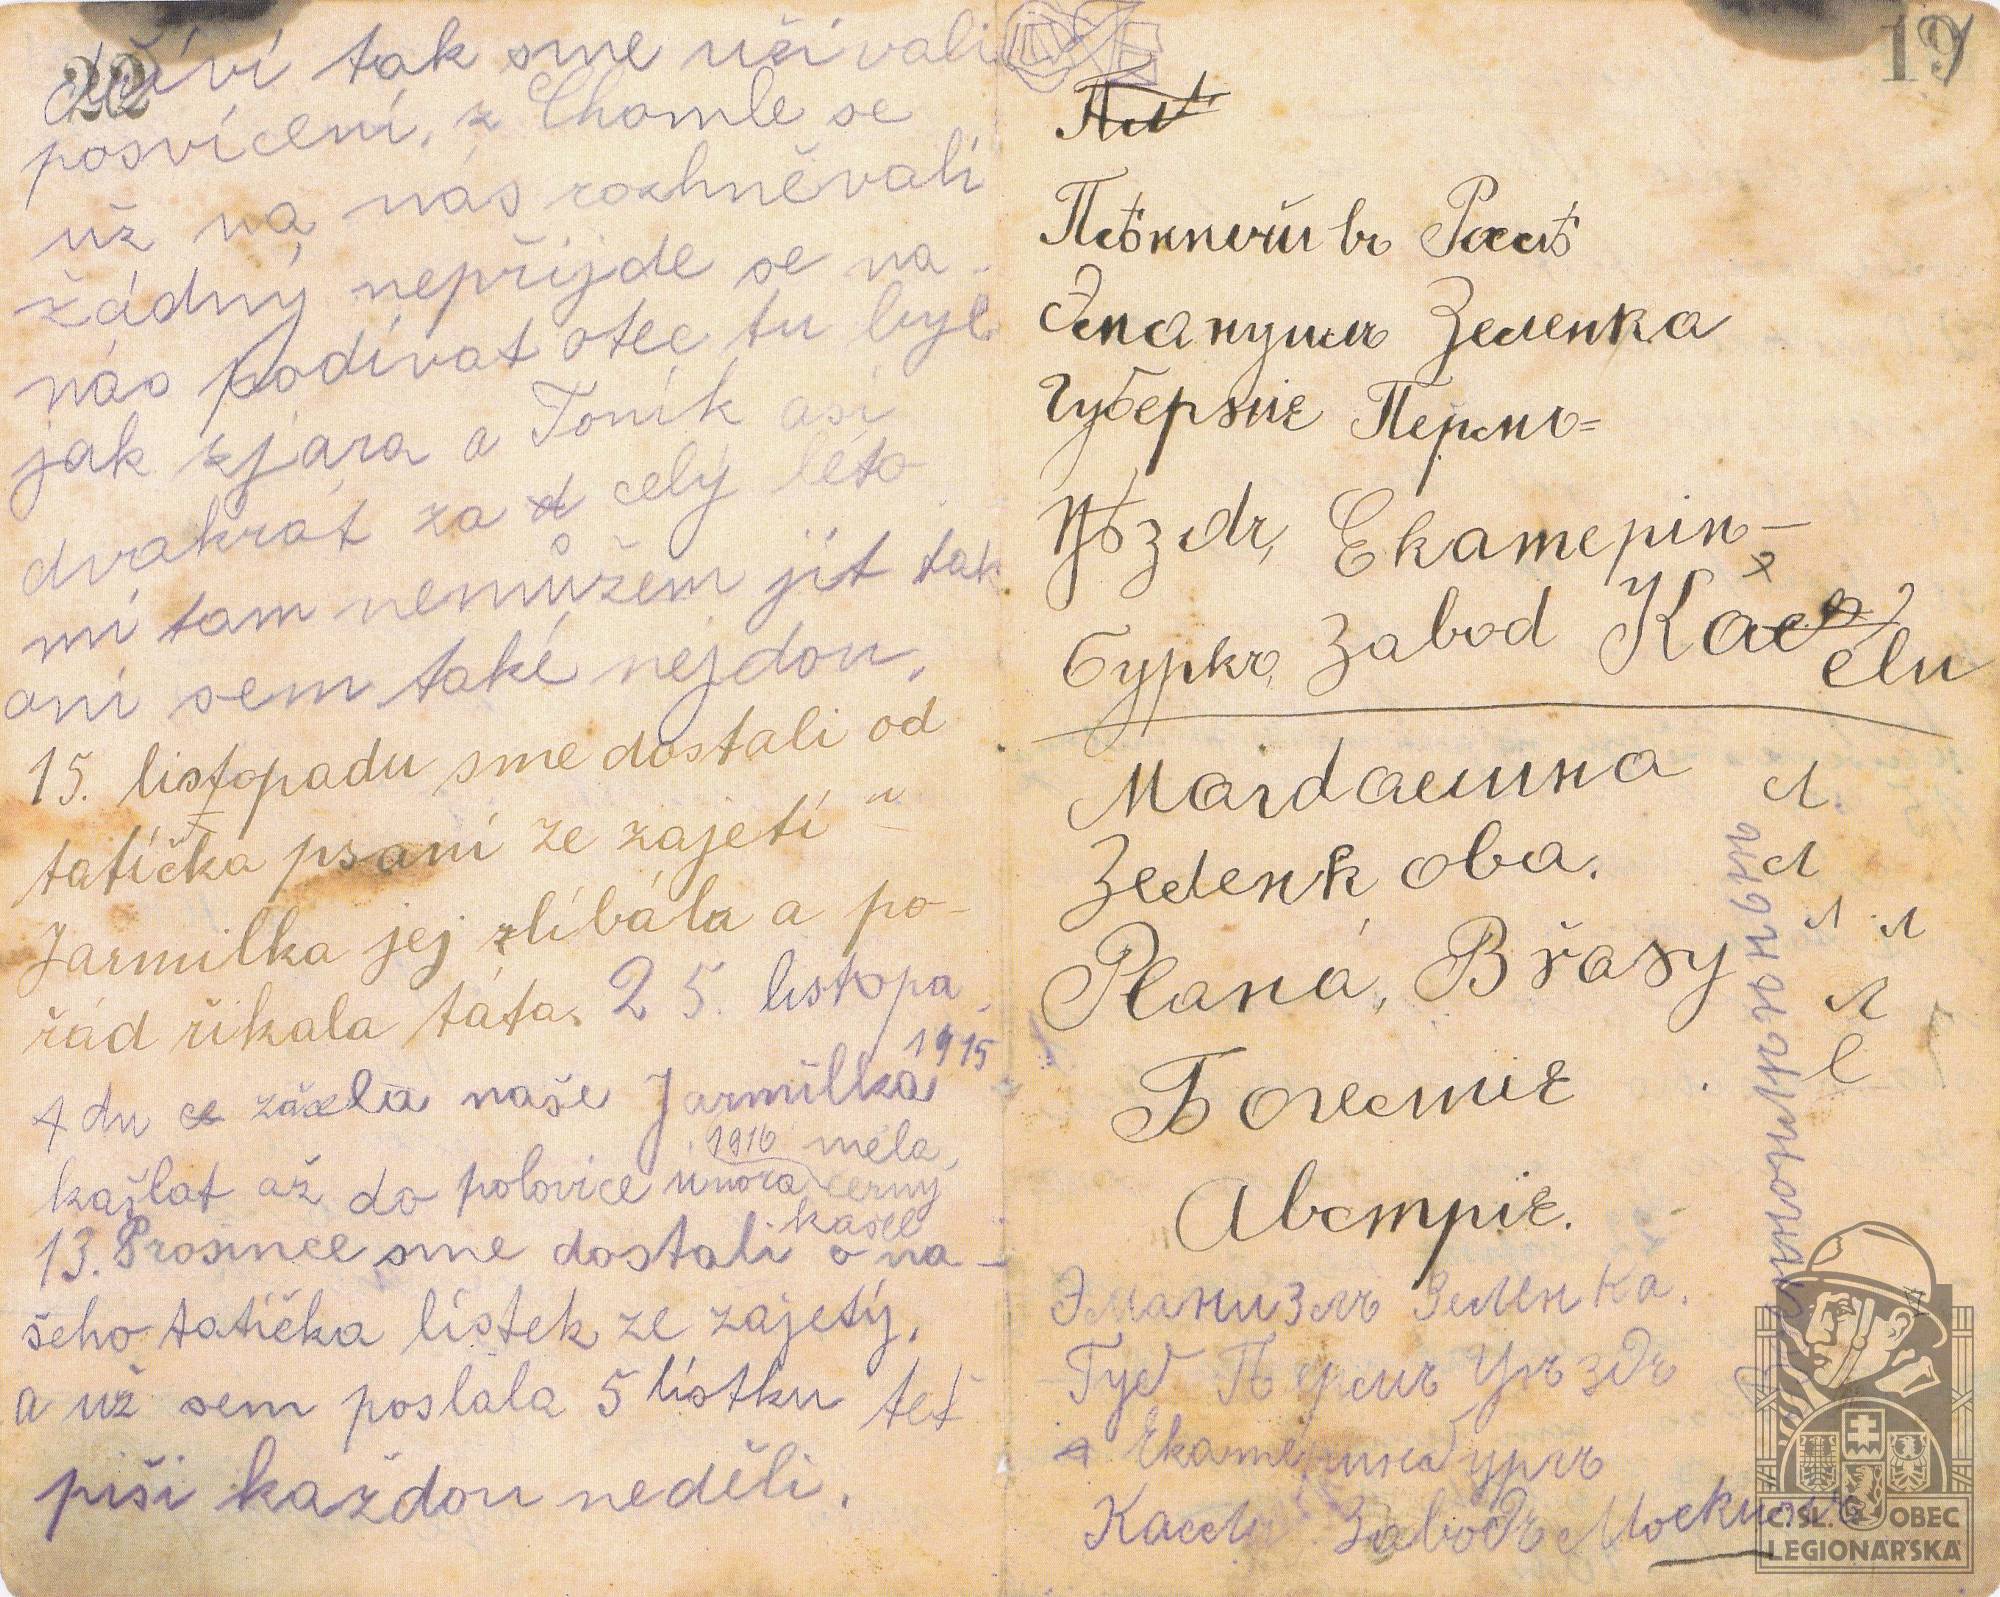 22
dříví tak sme učívali
posvícení, z Chomle se
už na nás rozhněvali
žádný nepřijde se na-
nás podívat otec tu byl
jak zjara a Toník asi
dvakrát za celý léto
mi tam nemůžem jít tak
oni sem také nejdou.
15. listopadu sme dostali od
tatíčka psaní ze zajetí
Jarmilka jej zlíbála a po-
řád řikala táta. 25. listopa
1915
du začla naše Jarmilka
kašlat až do polovice února 1916 měla
černý
kašel
13. Prosince sme dostali o na-
šeho tatíčka lístek ze zajetý.
a už sem poslala 5 lístku teť
piši každou neděli.
19
Плѣнпый въ Россіѣ
Земануилъ Зеленка
Губерніе Пермъ=
Уѣздъ, Екатерин-
бургъ, Завод Касли
Магдалина
Зеленкова.
Planá, Břasy
Богеміе
Австріе.
Л
Л
Л Л
Л
Емануэлъ Зеленка.
Губ Пермъ Уъздъ
Екатеринбургъ
Касли Заводъ
Č.SL. OBEC
LEGIONÁŘSKÁ